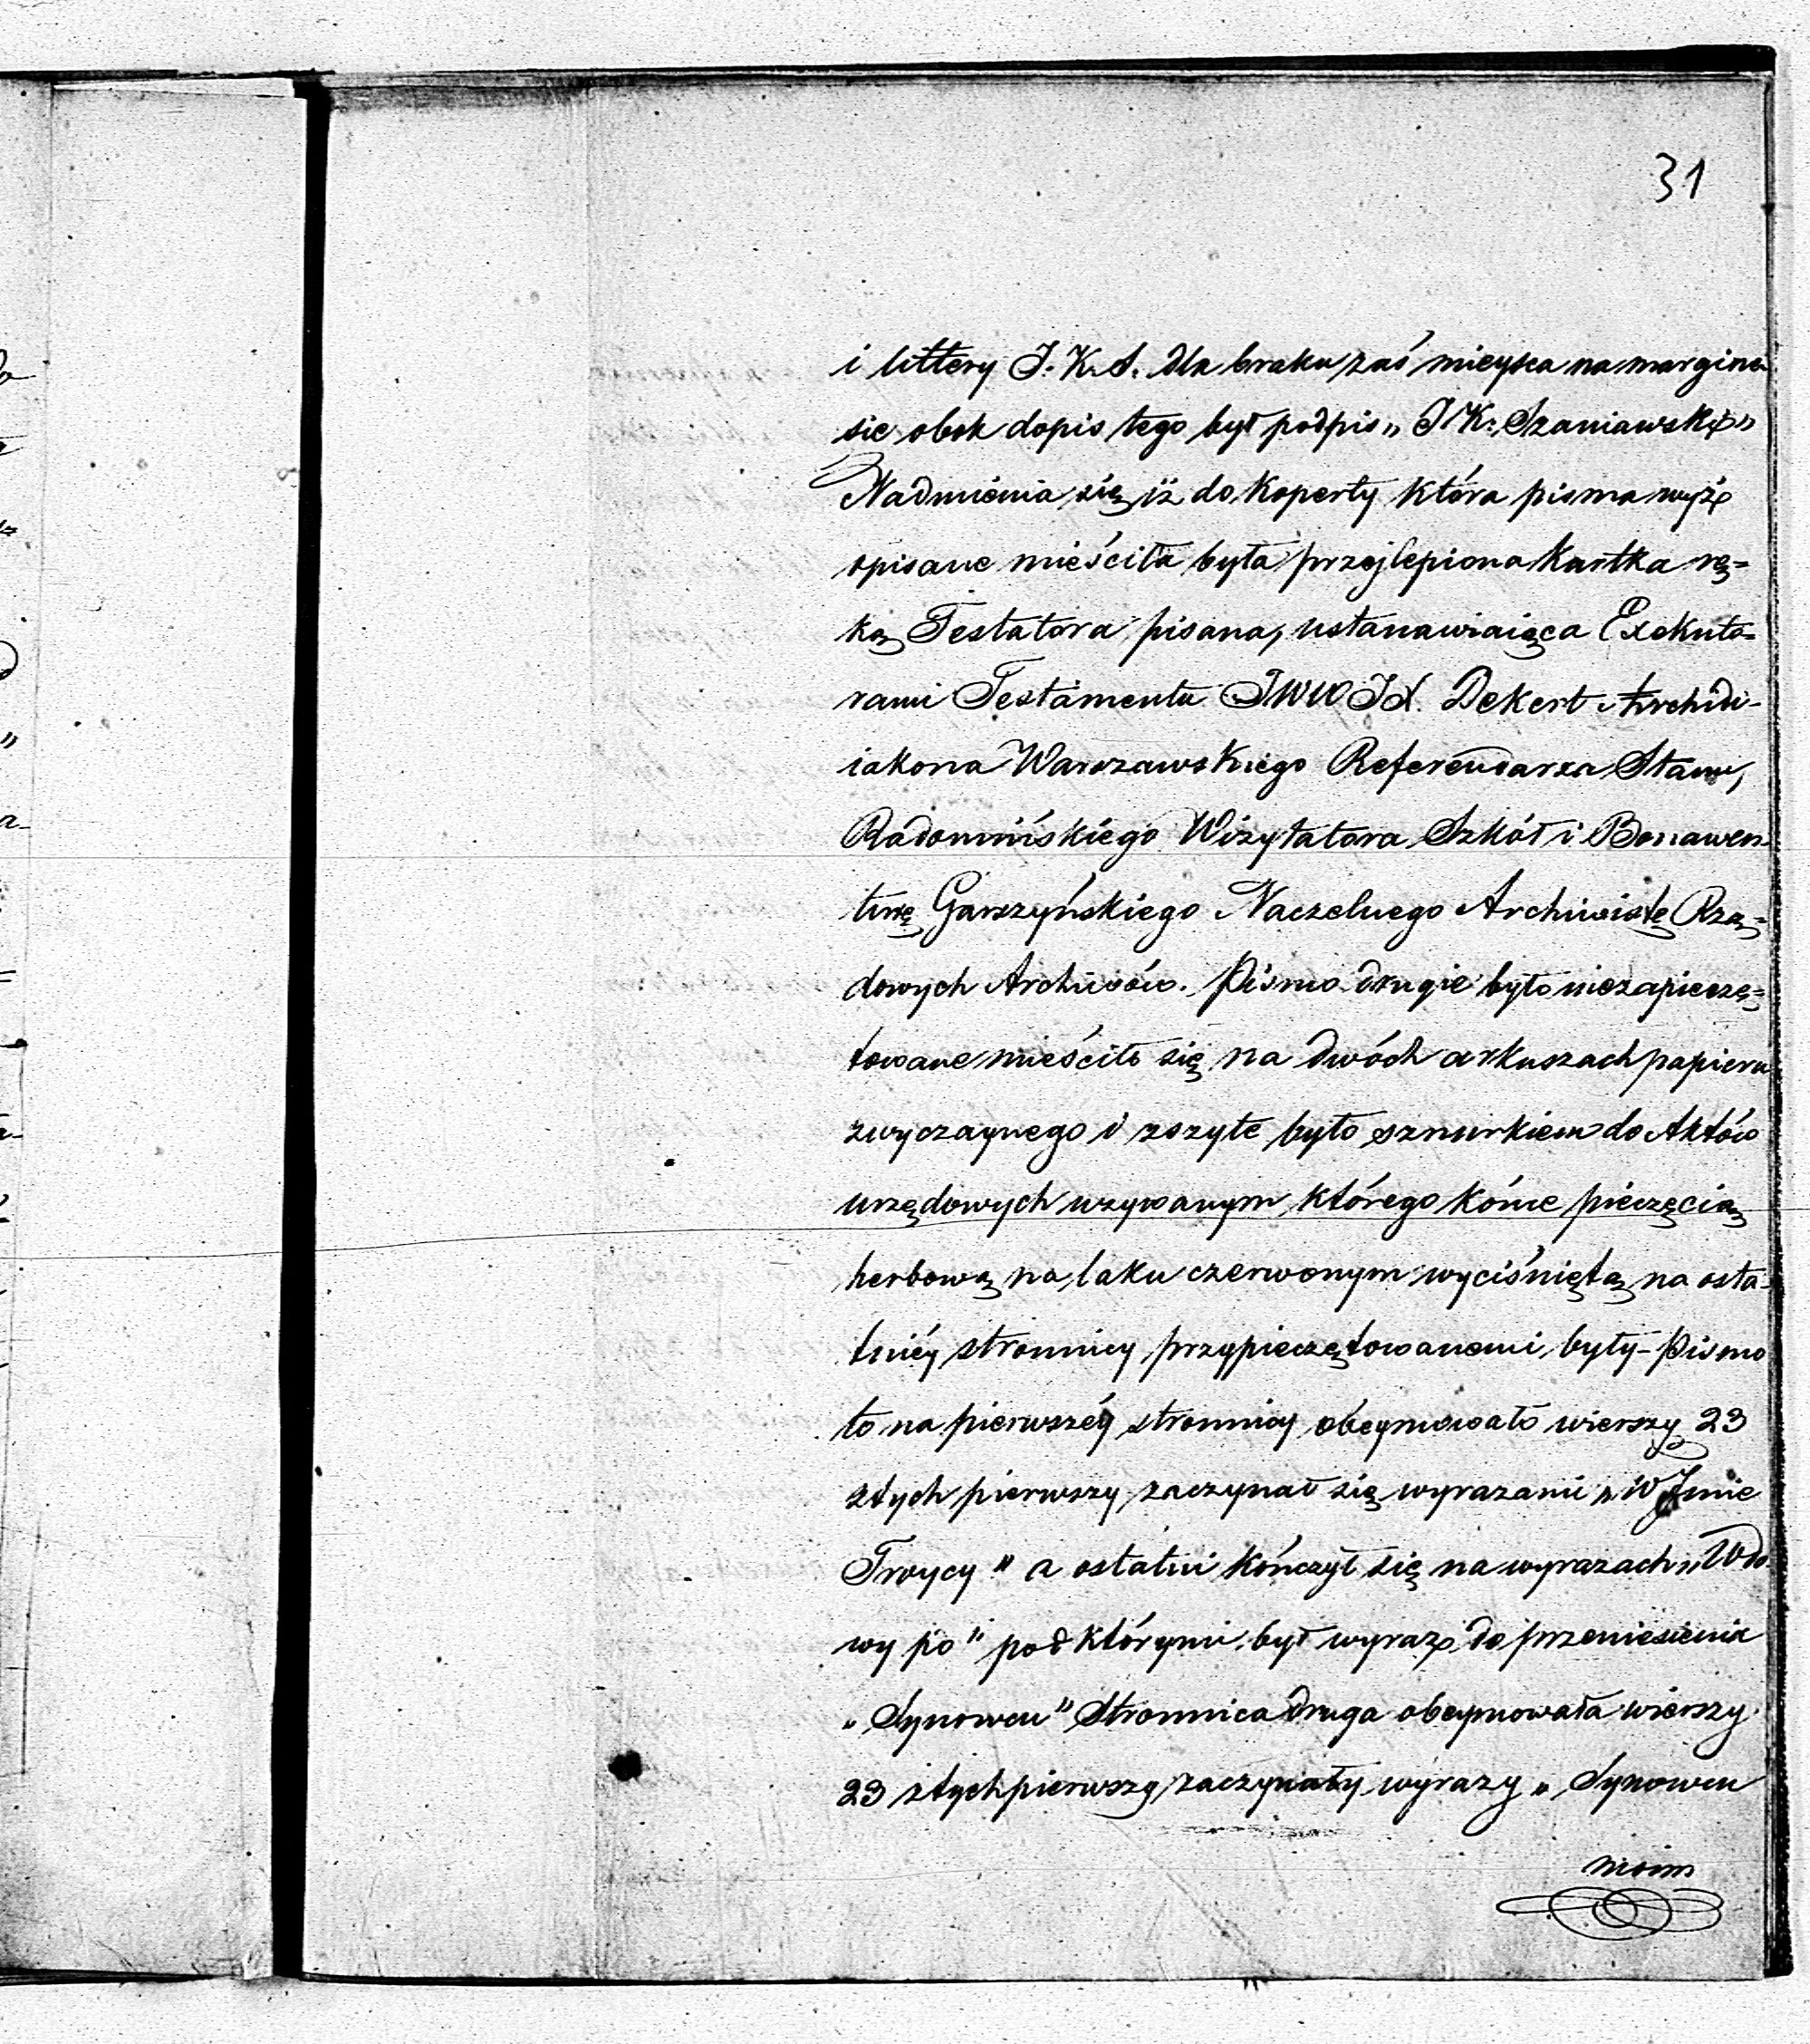 31
i littery J. K. S. dla braku zaś mieysca na margine-
sie obok dopis tego był podpis „ J K. Szaniawski”
Nadmienia się iż do koperty która pisma wyż
opisane mieściła była przylepiona kartka rę=
ką Testatora pisana, ustanawiaiąca Exekuto=
rami Testamentu JWW JX. Dekert Archidi-
iakona Warszawskiego Referendarza Stanu,
Radomińskiego Wizytatora Szkół i Bonawen-
turę Garszyńskiego Naczelnego Archiwistę Rzą=
dowych Archiwów. Pismo drugie było niezapieczę=
towane mieściło się na dwóch arkuszach papieru
zwyczaynego i zszyte było sznurkiem do Aktów
urzędowych używanym, którego końce pieczęcią
herbową na laku czerwonym wyciśniętą na osta-
tniéy stronnicy przypieczętowanemi były - Pismo
to na pierwszéy stronnicy obeymowało wierszy 23
z tych pierwszy zaczynał się wyrazami „ W Jmie
Troycy ” a ostatni kończył się na wyrazach „ Wdo-
wy po ” pod którymi był wyraz do przeniesienia
„ Synowcu ” Stronnica druga obeymowała wierszy
23 z tych pierwszy zaczynały wyrazy „ Synowcu
moim